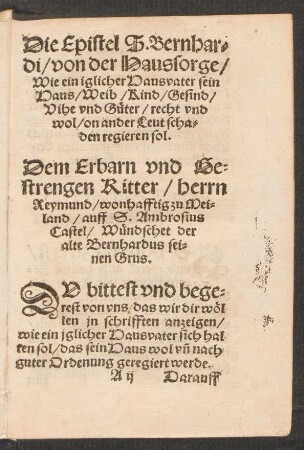 Die Epistel S. Bernhar-
di/ von der Haussorge/
Wie ein iglicher Hausvater sein
Haus/ Weib/ Kind/ Gesind/
Vihe vnd Güter/ recht vnd
wol/ on ander Leut scha-
den regieren sol.
Dem Erbarn vnd Ge-
strengen Ritter/ herrn
Reymund/ wonhafftig zu Mei-
land/ auff S. Ambrosius
Castel/ Wündschet der
alte Bernhardus sei-
nen Grus.
DV bittest vnd bege-
rest von vns/ das wir dir wöl
len in schrifften anzeigen/
wie ein jglicher Hausvater sich hal
ten sol/ das sein Haus wol vñ nach
guter Ordenung geregiert werde.
A ij Darauff